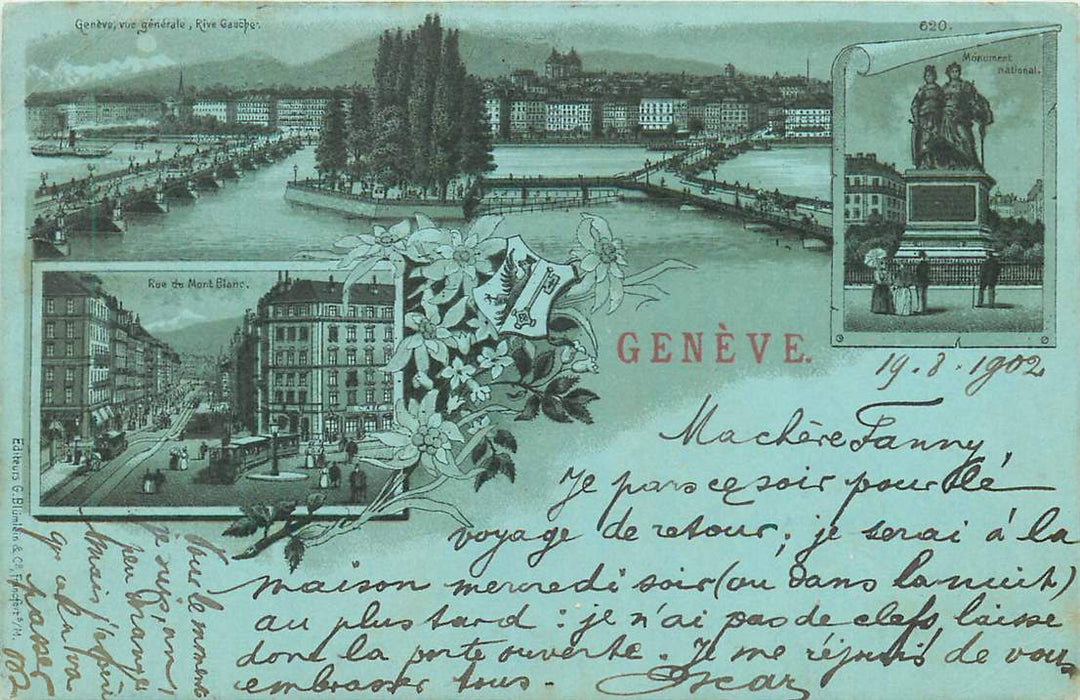 Genève, vue générale, Rive Gauche.
620.
Monument
national.
Rue du Mont Blanc.
GENÈVE.
19.8.1902
Ma chère Fanny,
Je pars ce soir pour le
voyage de retour; je serai à la
maison mercredi soir (ou dans la nuit)
au plus tard: je n'ai pas de clefs laisse
donc la porte ouverte. Je me réjouis de vous
embrasser tous. Oscar
Pour le moment
je suis un
peu
mais j'espère
que cela va
passer
Editeurs G. Blümlein & Cº, Francfort s/M.